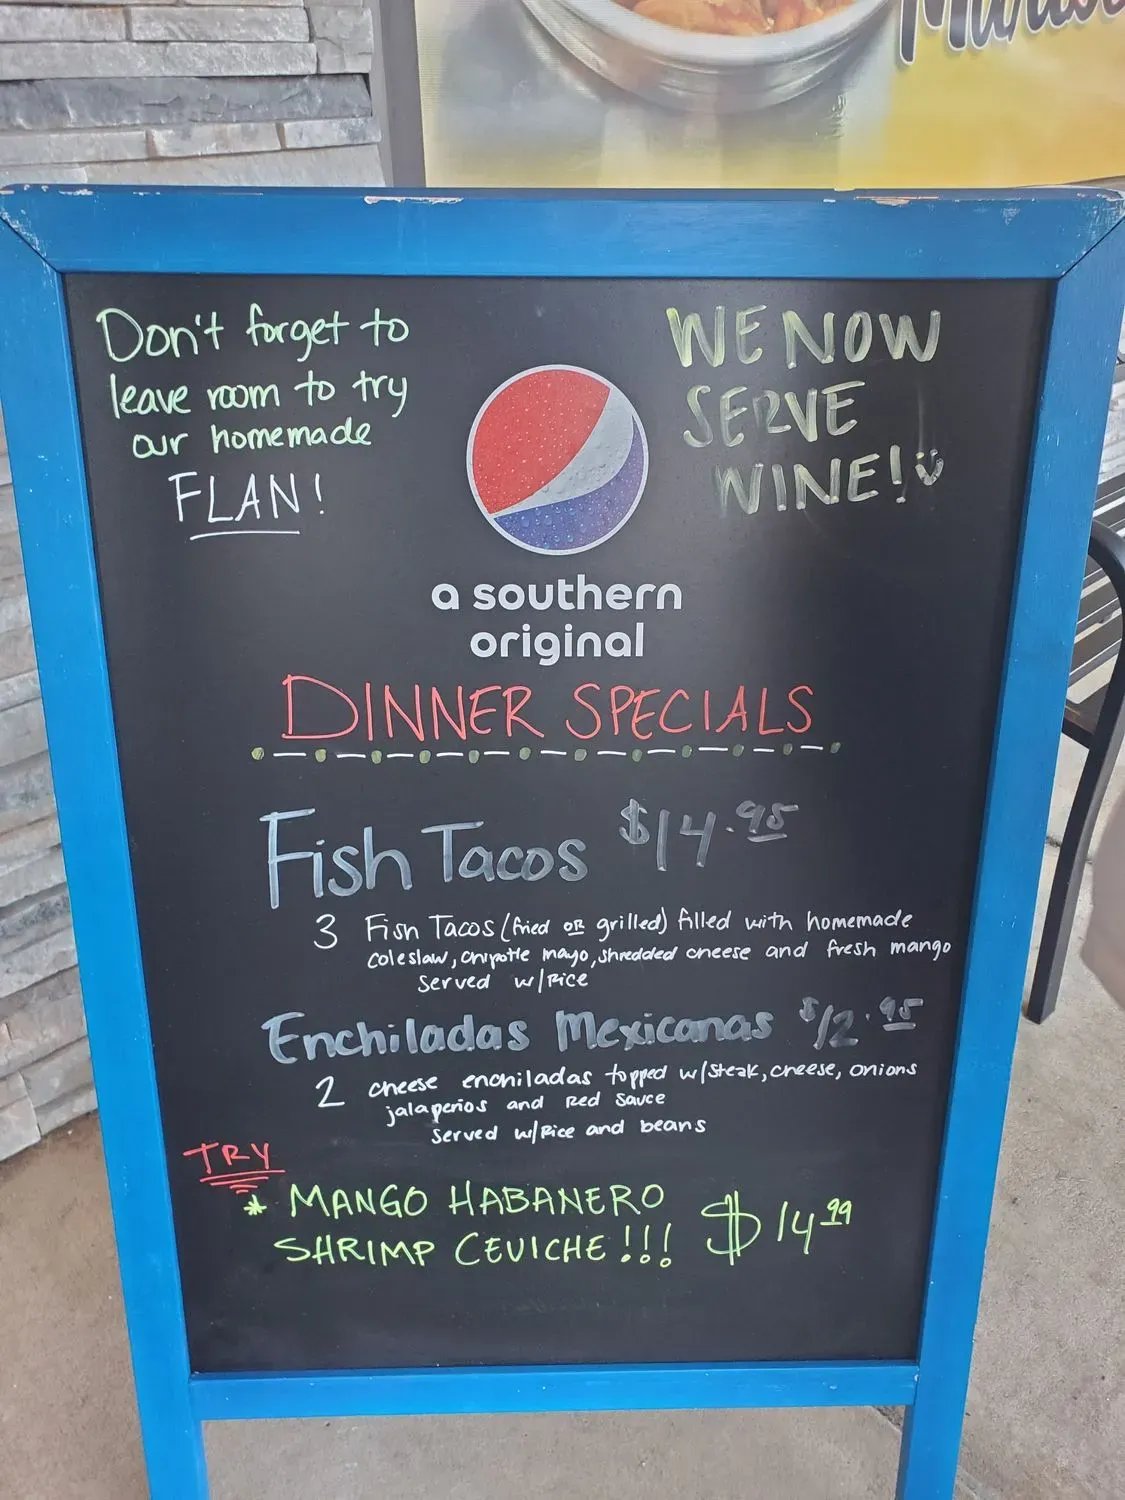 Don't forget to
leave room to try
our homemade
FLAN!
WE NOW
SERVE
WINE!
a southern
original
DINNER SPECIALS
Fish Tacos $14.95
3 Fish Tacos (fried OR grilled) filled with homemade
coleslaw, chipotle mayo, shredded cheese and fresh mango
served w/Rice
Enchiladas Mexicanas $12.95
2 cheese enchiladas topped w/steak, cheese, onions
jalapeños and Red Sauce
served w/Rice and beans
TRY
* MANGO HABANERO
SHRIMP CEVICHE!!! $14.99